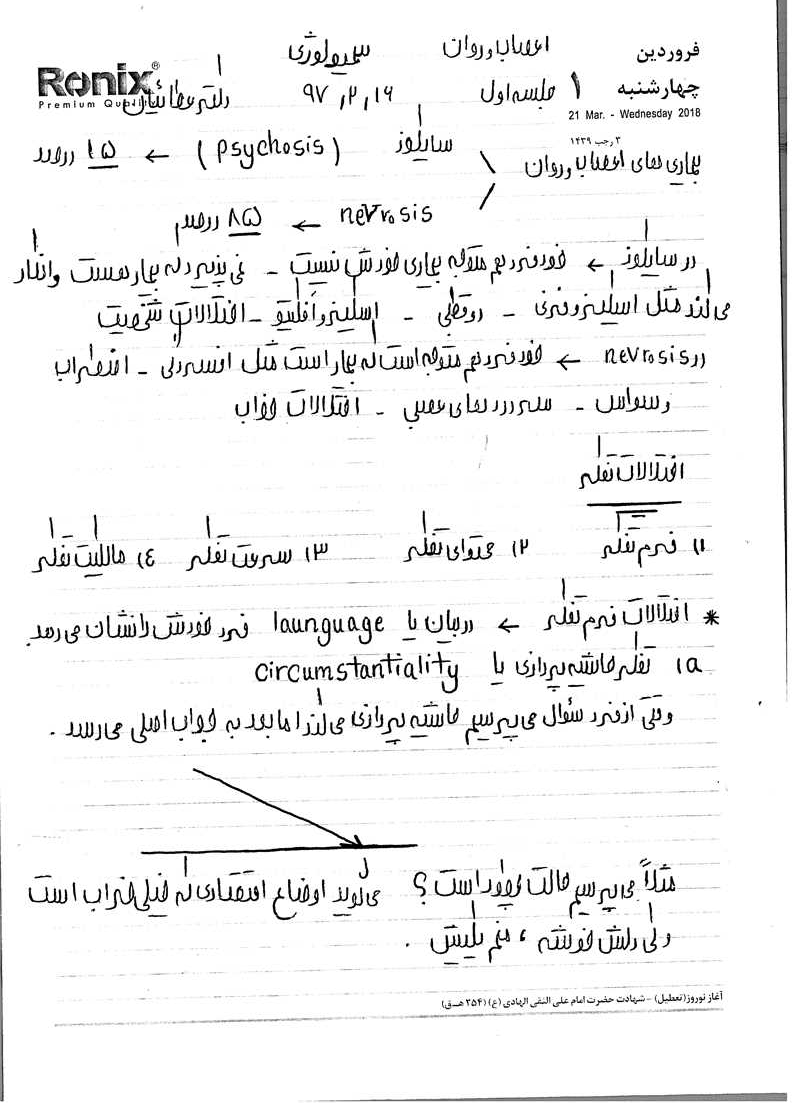 فروردین
چهارشنبه
۱
21 Mar. - Wednesday 2018
۳ رجب ۱۴۳۹
Ronix®
Premium Quality
اعصاب و روان سمیولوژی
جلسه اول ۹۷,۲,۱۶ دکتر عطائیان
سایکوز (psychosis) ← ۱۵ درصد
بیماری های اعصاب و روان
nevrosis ← ۸۵ درصد
در سایکوز ← خود فرد هم متوجه بیماری خودش نیست - نمی پذیرد که بیمار هست و انکار
می کند مثل اسکیزوفرنی - دوقطبی - اسکیزوافکتیو - اختلالات شخصیت
در nevrosis ← خود فرد هم متوجه است که بیمار است مثل افسردگی - اضطراب
وسواس - سردردهای عصبی - اختلالات خواب
اختلالات تفکر
۱) فرم تفکر ۲) محتوای تفکر ۳) سرعت تفکر ٤) مالکیت تفکر
* اختلالات فرم تفکر ← در بیان یا launguage فرد خودش را نشان می دهد
a) تفکر حاشیه پردازی یا circumstantiality
وقتی از فرد سؤال می پرسیم حاشیه پردازی می کند اما بعد به جواب اصلی می رسد.
مثلاً می پرسیم حالت چطور است؟ می گوید اوضاع اقتصادی که خیلی خراب است
ولی دلش خوشته، منم بلیش.
آغاز نوروز(تعطیل) - شهادت حضرت امام علی النقی الهادی (ع) (۲۵۴ هـ.ق)